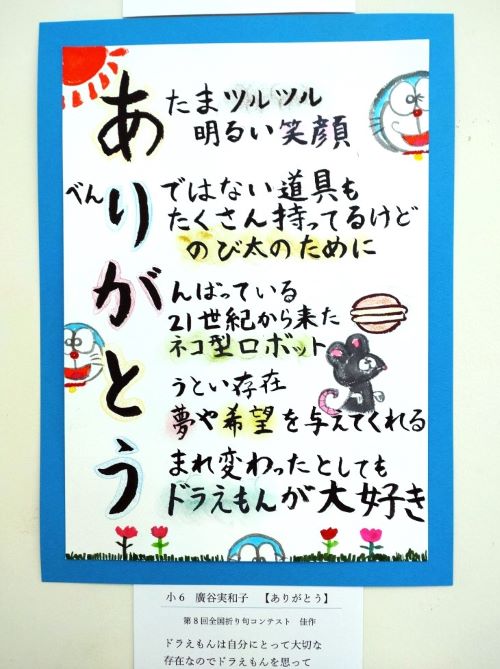 あたまツルツル
明るい笑顔
べんりではない道具も
たくさん持ってるけど
のび太のために
がんばっている
21世紀から来た
ネコ型ロボット
とうとい存在
夢や希望を与えてくれる
うまれ変わったとしても
ドラえもんが大好き
小6 廣谷実和子 【ありがとう】
第8回全国折り句コンテスト 佳作
ドラえもんは自分にとって大切な
存在なのでドラえもんを思って